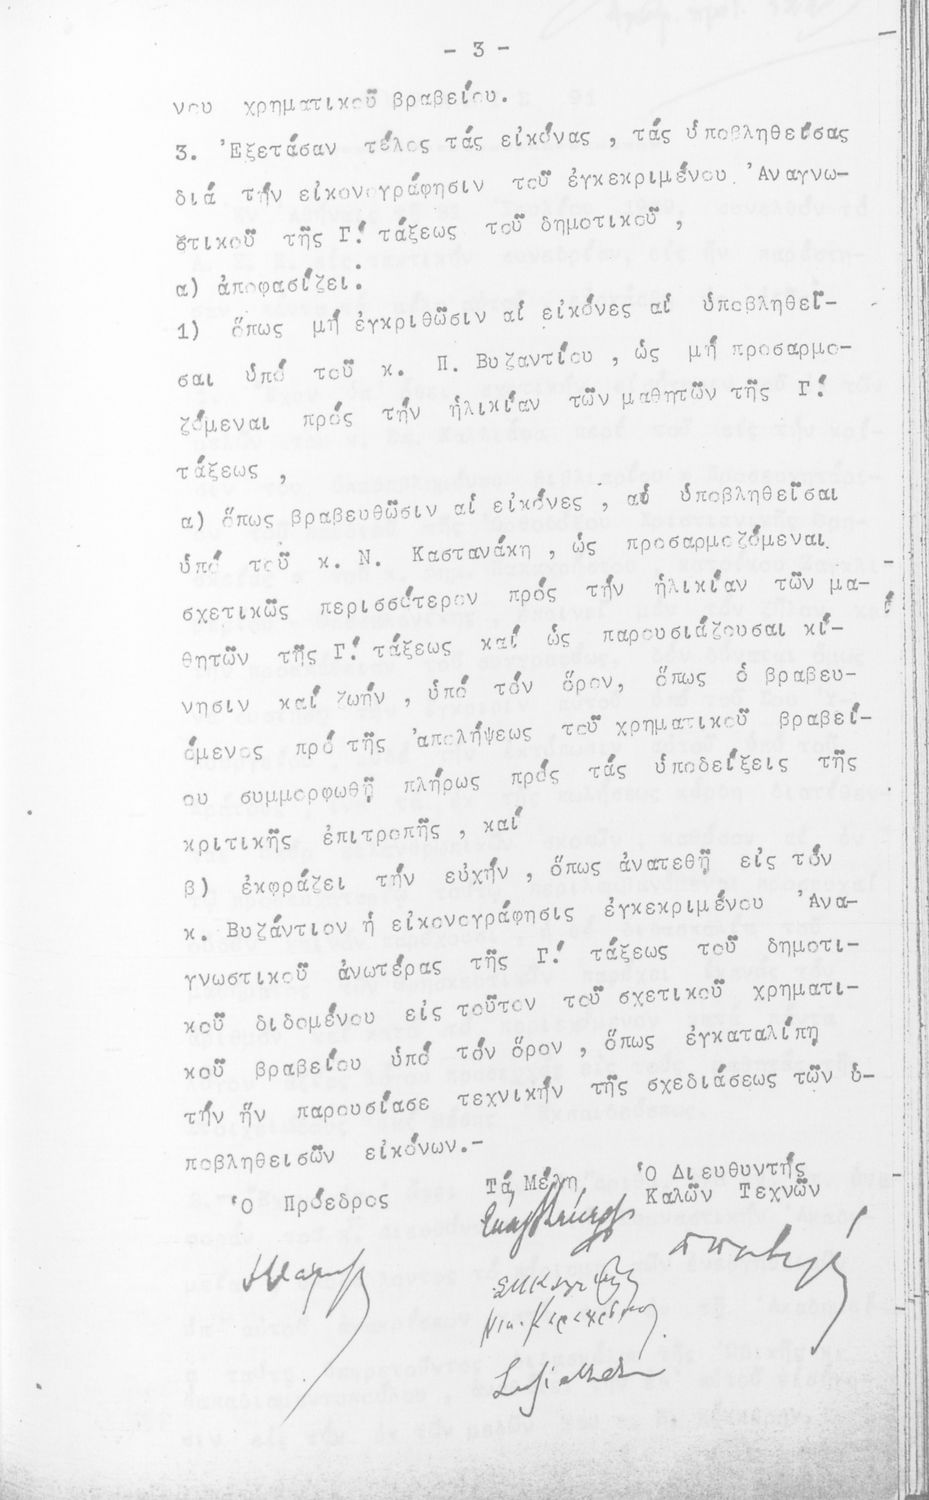 - 3 -
νου χρηματικοῦ βραβείου.
3. Ἐξετάσαν τέλος τάς εἰκόνας , τάς ὑποβληθείσας
διά τήν εἰκονογράφησιν τοῦ ἐγκεκριμένου Ἀναγνω-
στικοῦ τῆς Γ! τάξεως τοῦ δημοτικοῦ ,
α) ἀποφασίζει :
1) ὅπως μή ἐγκριθῶσιν αἱ εἰκόνες αἱ ὑποβληθεῖ-
σαι ὑπό τοῦ κ. Π. Βυζαντίου , ὡς μή προσαρμο-
ζόμεναι πρός τήν ἡλικίαν τῶν μαθητῶν τῆς Γ!
τάξεως ,
α) ὅπως βραβευθῶσιν αἱ εἰκόνες , αἱ ὑποβληθεῖσαι
ὑπό τοῦ κ. Ν. Καστανάκη , ὡς προσαρμοζόμεναι
σχετικῶς περισσότερον πρός τήν ἡλικίαν τῶν μα-
θητῶν τῆς Γ! τάξεως καί ὡς παρουσιάζουσαι κί-
νησιν καί ζωήν , ὑπό τόν ὅρον, ὅπως ὁ βραβευ-
όμενος πρό τῆς ἀπολήψεως τοῦ χρηματικοῦ βραβεί-
ου συμμορφωθῇ πλήρως πρός τάς ὑποδείξεις τῆς
κριτικῆς ἐπιτροπῆς , καί
β) ἐκφράζει τήν εὐχήν , ὅπως ἀνατεθῇ εἰς τόν
κ. Βυζάντιον ἡ εἰκονογράφησις ἐγκεκριμένου Ἀνα-
γνωστικοῦ ἀνωτέρας τῆς Γ! τάξεως τοῦ δημοτι-
κοῦ διδομένου εἰς τοῦτον τοῦ σχετικοῦ χρηματι-
κοῦ βραβείου ὑπό τόν ὅρον , ὅπως ἐγκαταλίπῃ
τήν ἥν παρουσίασε τεχνικήν τῆς σχεδιάσεως τῶν ὑ-
ποβληθεισῶν εἰκόνων.-
Ὁ Πρόεδρος Τά Μέλη Ὁ Διευθυντής
Καλῶν Τεχνῶν